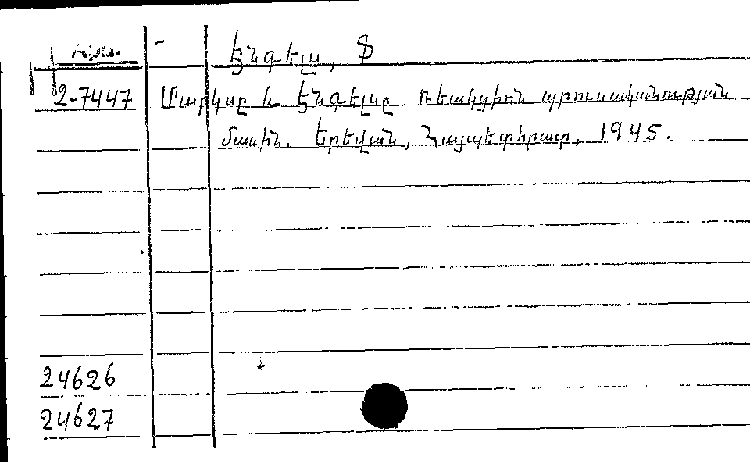 Էնգելս, Ֆ
2-7447 Մարկսը և Էնգելսը ռեակցիոն պրուսականության
մասին. Երևան, Հայպետհրատ, 1945.
24626
24627